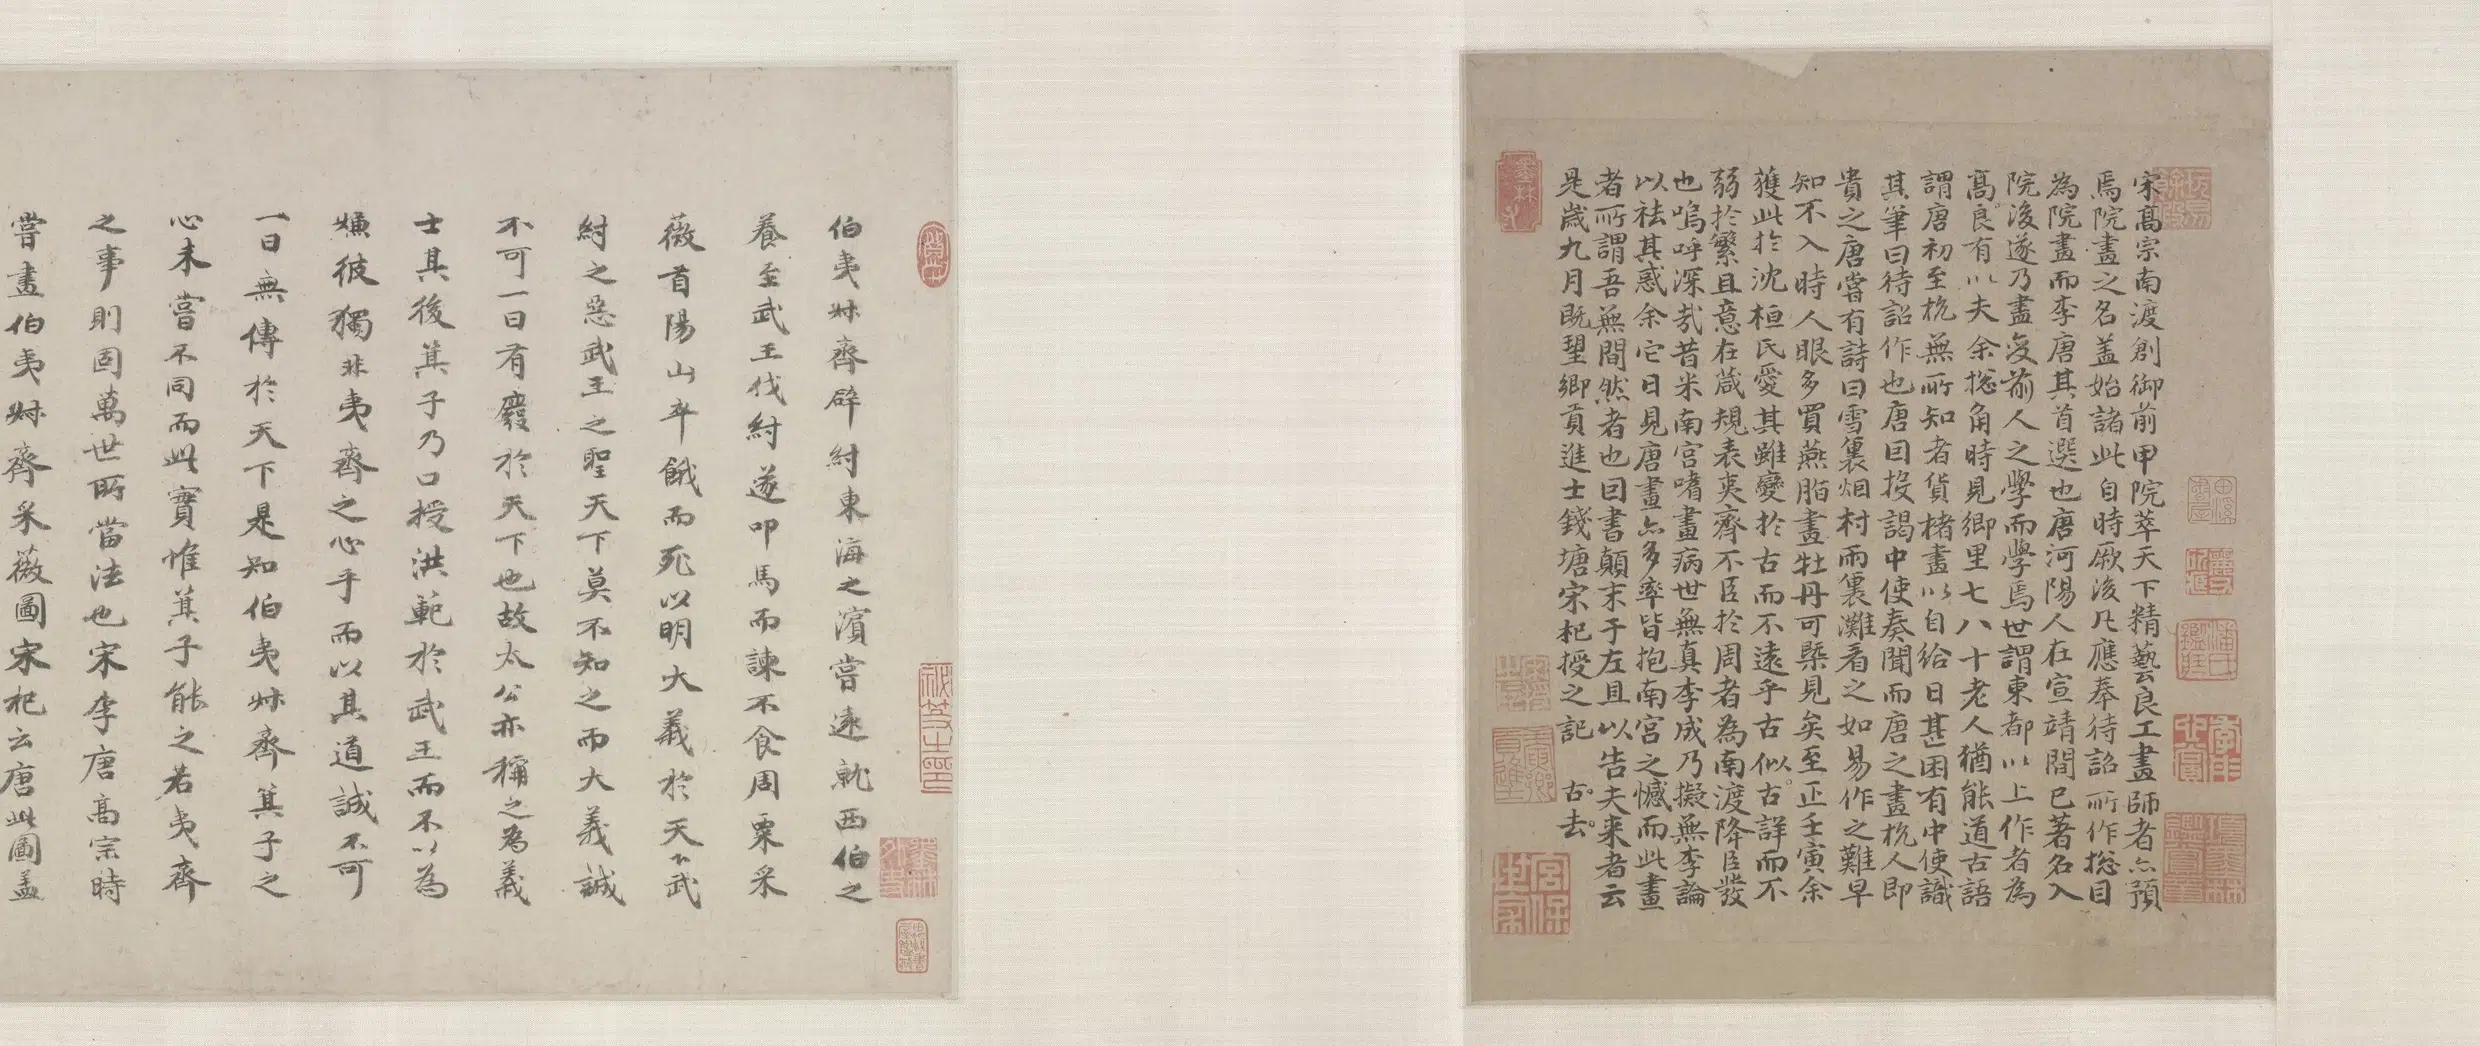 宋高宗南渡創御前甲院萃天下精藝良工畫師者亦預
焉院畫之名盖始諸此自時厥後凡應奉待詔所作揔目
為院畫而李唐其首選也唐河陽人在宣靖間已著名入
院後遂乃盡變前人之學而學焉世謂東都以上作者為
高良有以夫余揔角時見鄉里七八十老人猶能道古語
謂唐初至杭無所知者貨楮畫以自給日甚困有中使識
其筆曰待詔作也唐因投謁中使奏聞而唐之畫杭人即
貴之唐嘗有詩曰雪裏烟村雨裏灘看之如易作之難早
知不入時人眼多買燕脂畫牡丹可槩見矣至正壬寅余
獲此於沈桓氏愛其雖變於古而不遠乎古似古詳而不
弱於繁且意在葴規表夷齊不臣於周者為南渡降臣發
也嗚呼深㢤昔米南宮嗜畫病世無真李成乃擬無李論
以祛其惑余它日見唐畫亦多率皆抱南宮之憾而此畫
者所謂吾無間然者也因書顛末于左且以告夫来者云
是歲九月既望鄉貢進士錢塘宋杞授之記 古去
伯夷叔齊辟紂東海之濱嘗遠就西伯之
養至武王伐紂遂叩馬而諫不食周粟采
薇首陽山卒餓而死以明大義於天下武
紂之惡武王之聖天下莫不知之而大義誠
不可一日有廢於天下也故太公亦稱之為義
士其後箕子乃口授洪範於武王而不以為
嫌彼獨非夷齊之心乎而以其道誠不可
一日無傳於天下是知伯夷叔齊箕子之
心未嘗不同而此實惟箕子能之若夷齊
之事則固萬世所當法也宋李唐高宗時
嘗畫伯夷叔齊采薇圖宋杞云唐此圖盖